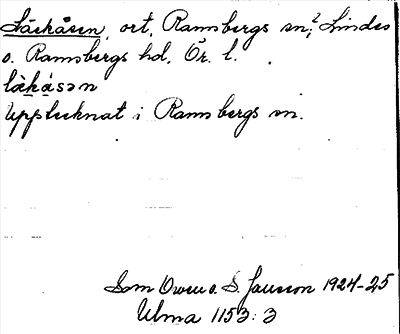 Läckåsen, ort, Ramsbergs sn, Lindes
o. Ramsbergs hd, Ör. l.
lä̀kåsən
Upptecknat i Ramsbergs sn.
Ivar Owen o. S. Jansson 1924-25
Ulma 1153:3